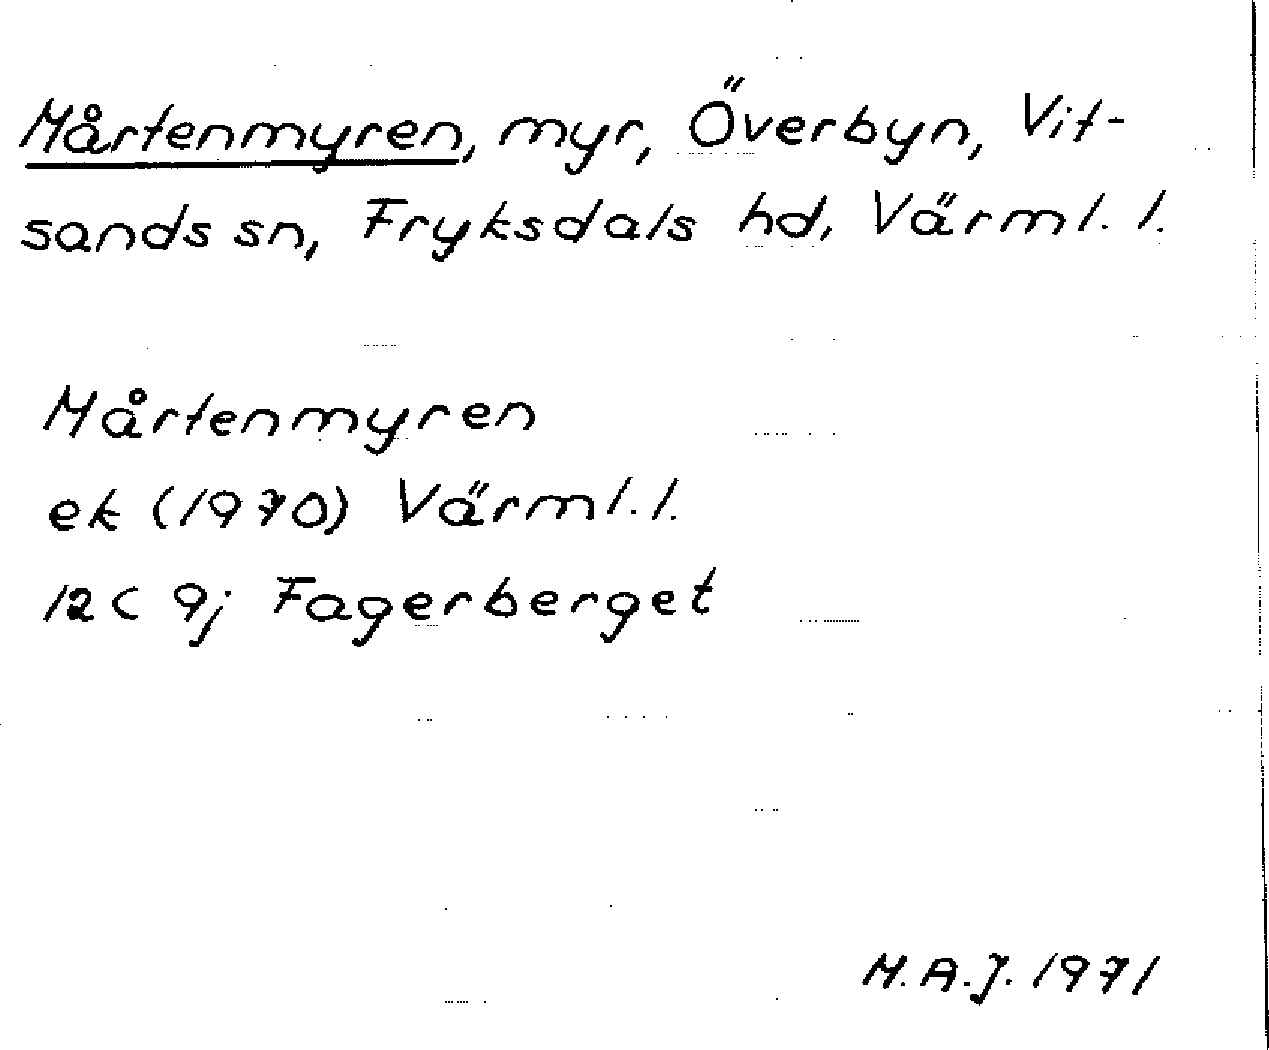 Mårtenmyren, myr, Överbyn, Vit-
sands sn, Fryksdals hd, Värml. l.
Mårtenmyren
ek (1970) Värml. l.
12C 9j Fagerberget
M.A.J. 1971